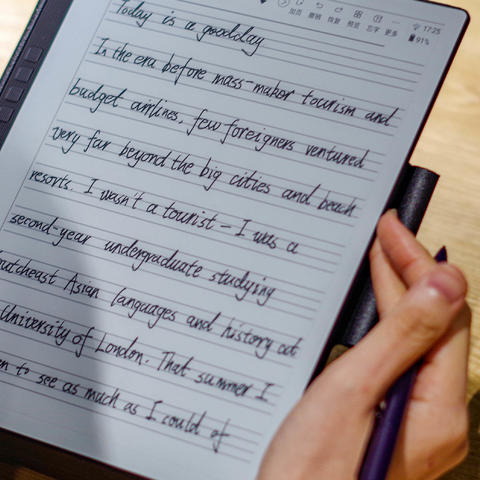 17:25
91%
加页 撤销 恢复 预览 忘字 更多
Today is a goodday
In the era before mass-makor tourism and
budget airlines, few foreigners ventured
very far beyond the big cities and beach
resorts. I wasn't a tourist - I was a
second-year undergraduate studying
Asian languages and history
University of London. That summer I
to see as much as I could of